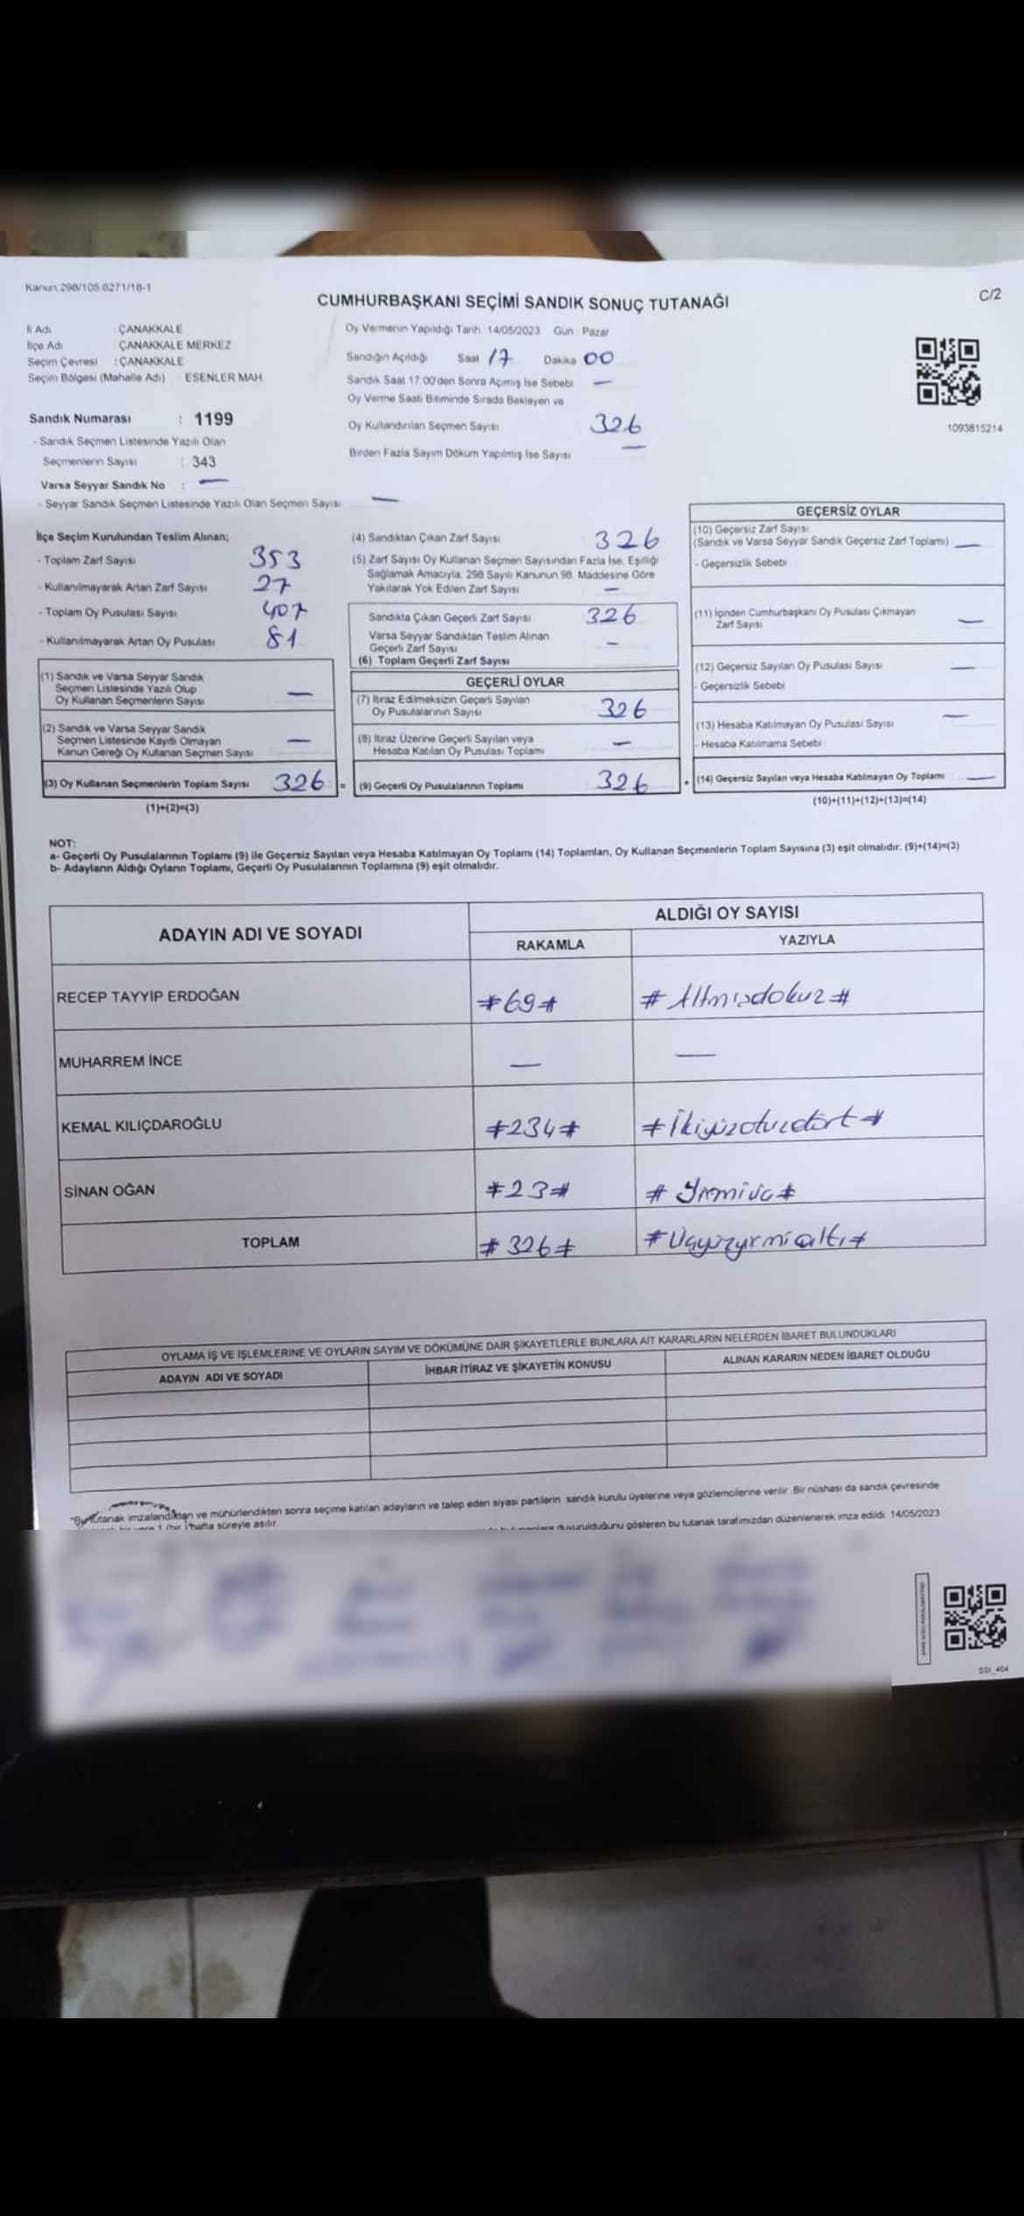 Kanun:298/105,6271/18-1
C/2
CUMHURBAŞKANI SEÇİMİ SANDIK SONUÇ TUTANAĞI
İl Adı : ÇANAKKALE
İlçe Adı : ÇANAKKALE MERKEZ
Seçim Çevresi : ÇANAKKALE
Seçim Bölgesi (Mahalle Adı) : ESENLER MAH
Sandık Numarası : 1199
- Sandık Seçmen Listesinde Yazılı Olan
Seçmenlerin Sayısı : 343
Varsa Seyyar Sandık No : —
- Seyyar Sandık Seçmen Listesinde Yazılı Olan Seçmen Sayısı —
Oy Vermenin Yapıldığı Tarih 14/05/2023 Gün : Pazar
Sandığın Açıldığı Saat 17 Dakika 00
Sandık Saat 17:00'den Sonra Açımış İse Sebebi —
Oy Verme Saati Bitiminde Sırada Bekleyen ve
Oy Kullandırılan Seçmen Sayısı 326
Birden Fazla Sayım Döküm Yapılmış İse Sayısı —
1093815214
İlçe Seçim Kurulundan Teslim Alınan;
- Toplam Zarf Sayısı 353
- Kullanılmayarak Artan Zarf Sayısı 27
- Toplam Oy Pusulası Sayısı 407
- Kullanılmayarak Artan Oy Pusulası 81
(1) Sandık ve Varsa Seyyar Sandık
Seçmen Listesinde Yazılı Olup
Oy Kullanan Seçmenlerin Sayısı —
(2) Sandık ve Varsa Seyyar Sandık
Seçmen Listesinde Kayıtlı Olmayan
Kanun Gereği Oy Kullanan Seçmen Sayısı —
(3) Oy Kullanan Seçmenlerin Toplam Sayısı 326 =
(1)+(2)=(3)
(4) Sandıktan Çıkan Zarf Sayısı 326
(5) Zarf Sayısı Oy Kullanan Seçmen Sayısından Fazla İse, Eşitliği
Sağlamak Amacıyla, 298 Sayılı Kanunun 98. Maddesine Göre
Yakılarak Yok Edilen Zarf Sayısı —
Sandıkta Çıkan Geçerli Zarf Sayısı 326
Varsa Seyyar Sandıktan Teslim Alınan
Geçerli Zarf Sayısı —
(6) Toplam Geçerli Zarf Sayısı
GEÇERLİ OYLAR
(7) İtiraz Edilmeksizin Geçerli Sayılan
Oy Pusulalarının Sayısı 326
(8) İtiraz Üzerine Geçerli Sayılan veya
Hesaba Katılan Oy Pusulası Toplamı —
(9) Geçerli Oy Pusulalarının Toplamı 326 +
GEÇERSİZ OYLAR
(10) Geçersiz Zarf Sayısı
(Sandık ve Varsa Seyyar Sandık Geçersiz Zarf Toplamı) —
- Geçersizlik Sebebi
(11) İçinden Cumhurbaşkanı Oy Pusulası Çıkmayan
Zarf Sayısı —
(12) Geçersiz Sayılan Oy Pusulası Sayısı —
- Geçersizlik Sebebi
(13) Hesaba Katılmayan Oy Pusulası Sayısı —
- Hesaba Katılmama Sebebi
(14) Geçersiz Sayılan veya Hesaba Katılmayan Oy Toplamı —
(10)+(11)+(12)+(13)=(14)
NOT:
a- Geçerli Oy Pusulalarının Toplamı (9) ile Geçersiz Sayılan veya Hesaba Katılmayan Oy Toplamı (14) Toplamları, Oy Kullanan Seçmenlerin Toplam Sayısına (3) eşit olmalıdır. (9)+(14)=(3)
b- Adayların Aldığı Oyların Toplamı, Geçerli Oy Pusulalarının Toplamına (9) eşit olmalıdır.
ADAYIN ADI VE SOYADI
ALDIĞI OY SAYISI
RAKAMLA YAZIYLA
RECEP TAYYİP ERDOĞAN #69# #Altmışdokuz#
MUHARREM İNCE — —
KEMAL KILIÇDAROĞLU #234# #İkiyüzotuzdört#
SİNAN OĞAN #23# #Yirmiüç#
TOPLAM #326# #Üçyüzyirmialtı#
OYLAMA İŞ VE İŞLEMLERİNE VE OYLARIN SAYIM VE DÖKÜMÜNE DAİR ŞİKAYETLERLE BUNLARA AİT KARARLARIN NELERDEN İBARET BULUNDUKLARI
ADAYIN ADI VE SOYADI İHBAR İTİRAZ VE ŞİKAYETİN KONUSU ALINAN KARARIN NEDEN İBARET OLDUĞU
"Bu tutanak imzalandıktan ve mühürlendikten sonra seçime katılan adayların ve talep eden siyasi partilerin sandık kurulu üyelerine veya gözlemcilerine verilir. Bir nüshası da sandık çevresinde
1 (bir) hafta süreyle asılır. duyurulduğunu gösteren bu tutanak tarafımızdan düzenlenerek imza edildi. 14/05/2023